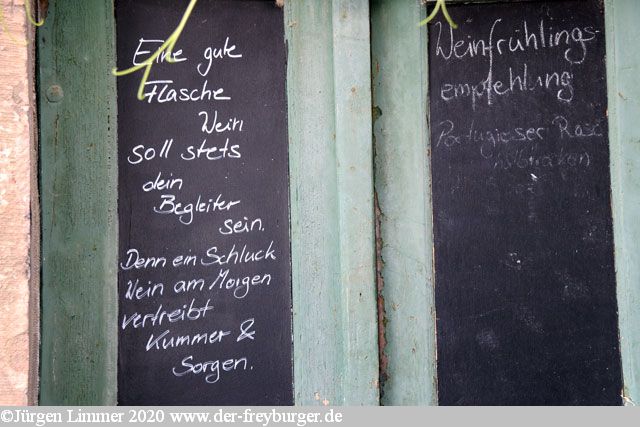 Eine gute
Flasche
Wein
soll stets
dein
Begleiter
sein.
Denn ein Schluck
Wein am Morgen
vertreibt
Kummer &
Sorgen.
Weinfrühlings-
empfehlung
Portugieser Rosé
©Jürgen Limmer 2020 www.der-freyburger.de